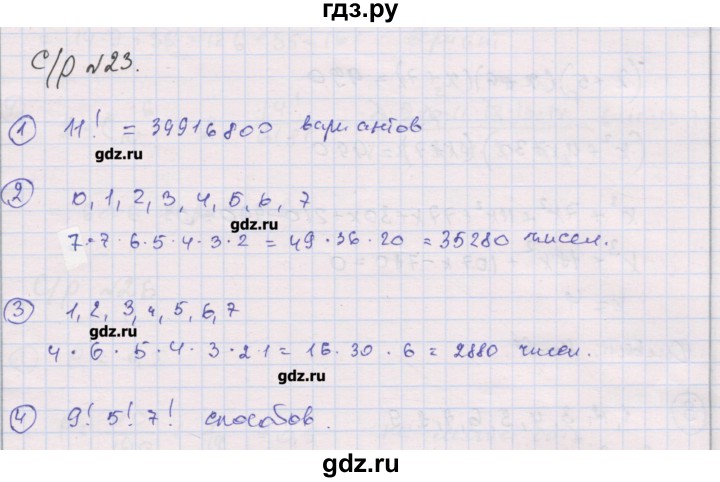 гдз.ру
С/р №23.
1 11! = 39916800 вариантов
gdz.ru
2 0, 1, 2, 3, 4, 5, 6, 7
gdz.ru
7·7·6·5·4·3·2 = 49·36·20 = 35280 чисел.
3 1, 2, 3, 4, 5, 6, 7
gdz.ru
4·6·5·4·3·2·1 = 16·30·6 = 2880 чисел.
gdz.ru
4 9! 5! 7! способов.
gdz.ru
gdz.ru